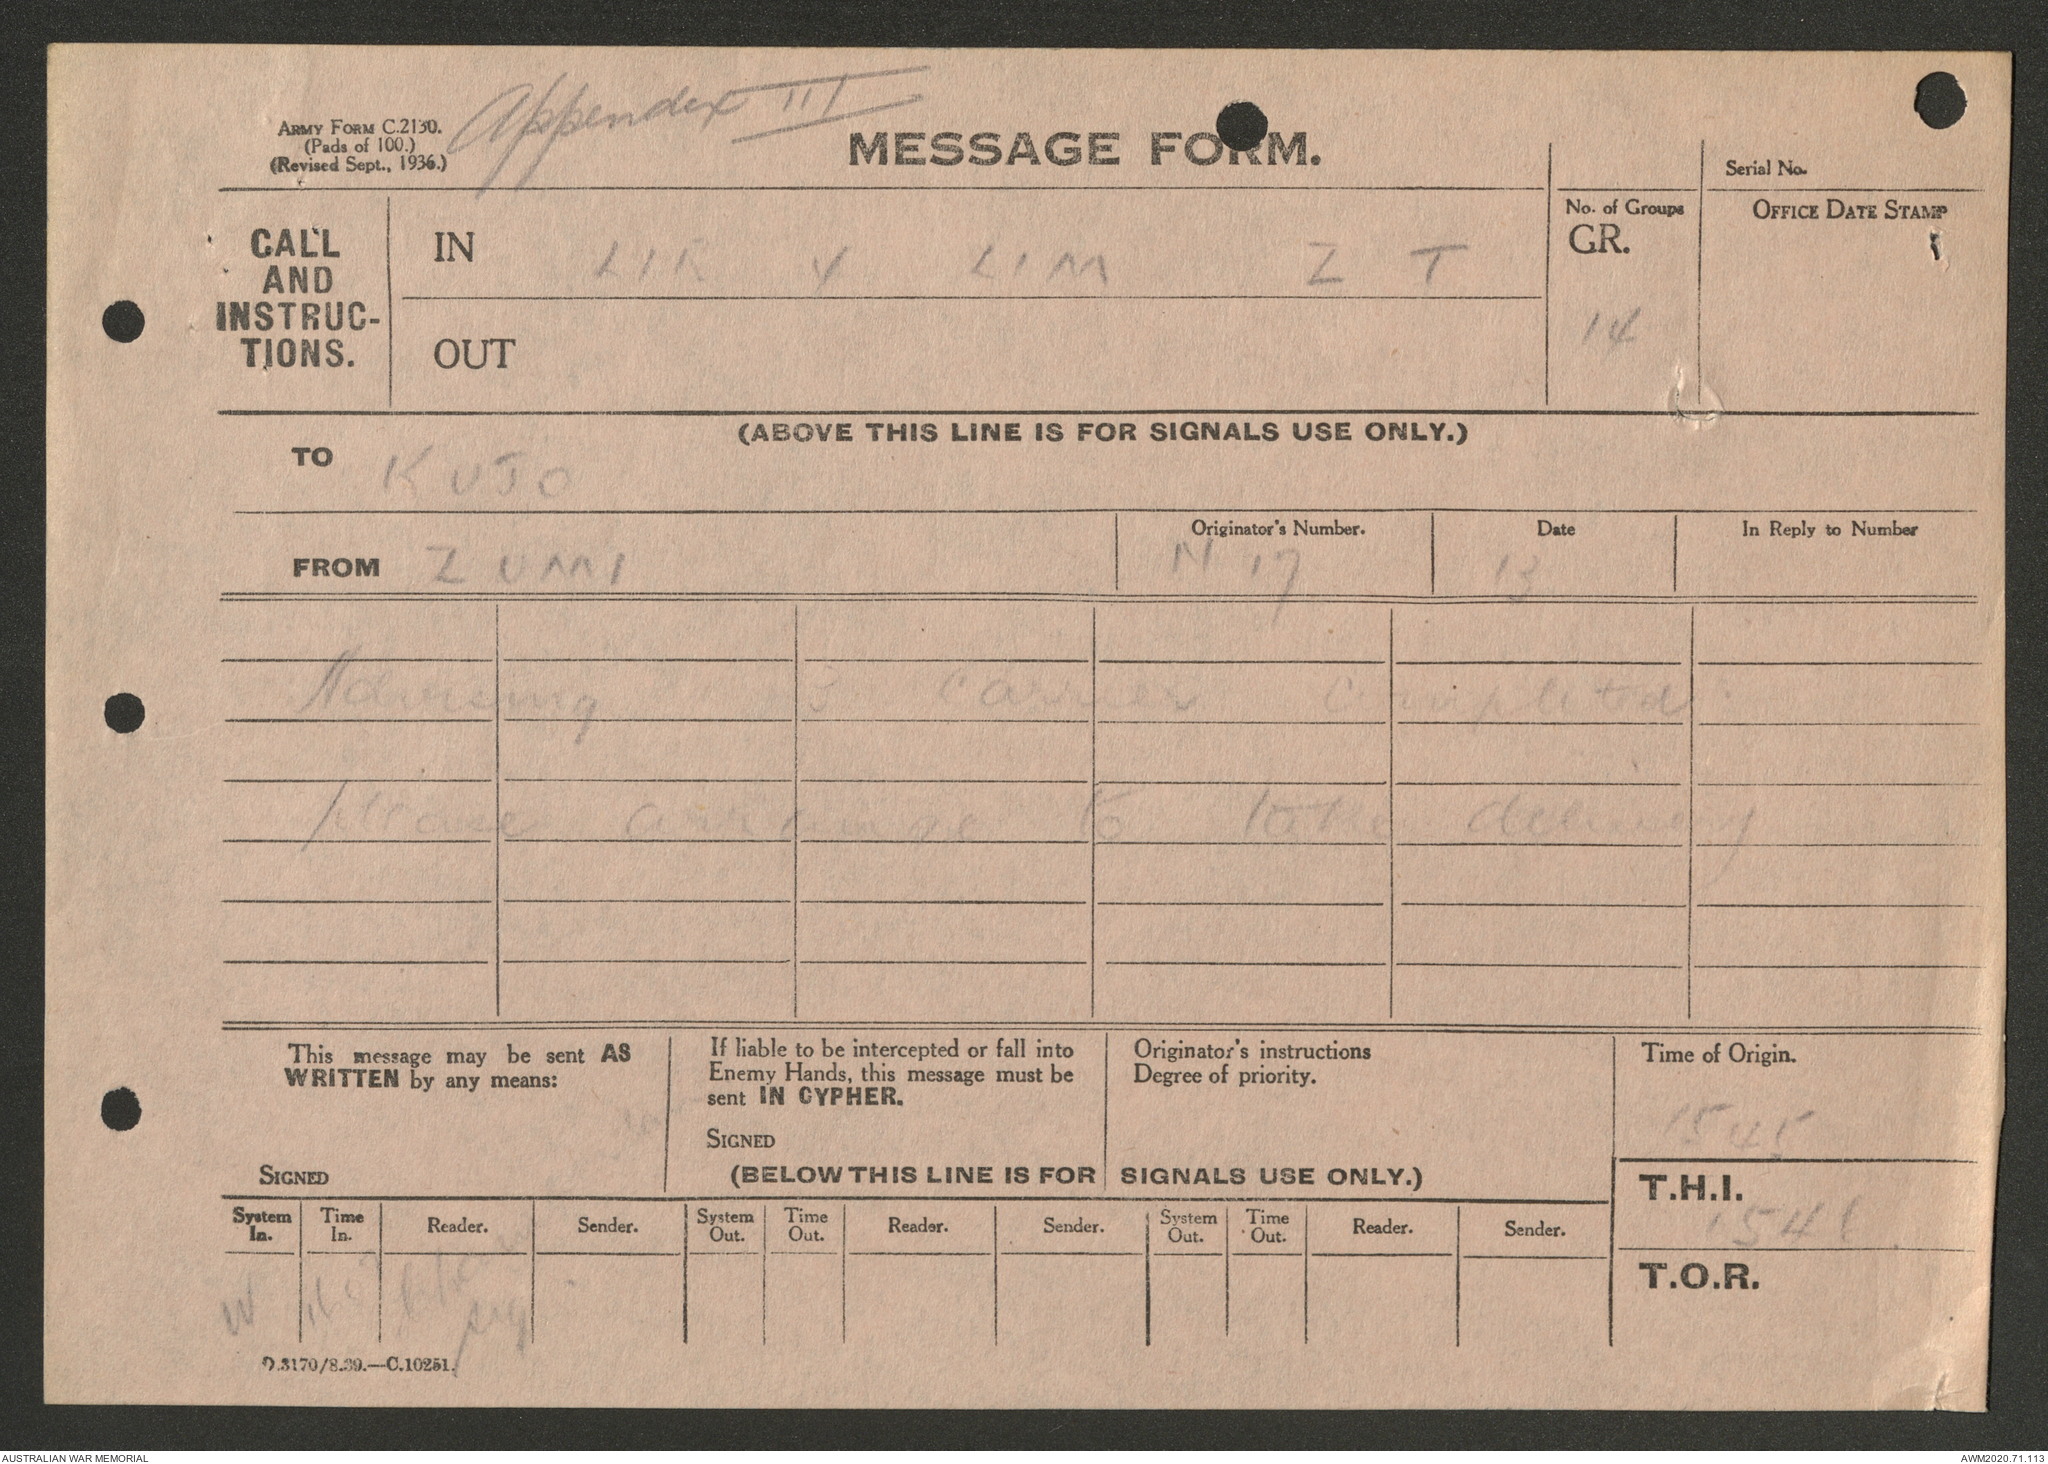 Appendix III
ARMY FORM C.2130.
(Pads of 100.)
(Revised Sept., 1936.)
MESSAGE FORM.
Serial No.
CALL AND INSTRUC-TIONS.
IN LIR V LIM Z T
OUT
No. of Groups
GR.
14
OFFICE DATE STAMP
(ABOVE THIS LINE IS FOR SIGNALS USE ONLY.)
TO KUJO
FROM ZUMI
Originator's Number.
N 17
Date
13
In Reply to Number
3 carrier completed
please arrange to take delivery
This message may be sent AS
WRITTEN by any means:
SIGNED
If liable to be intercepted or fall into
Enemy Hands, this message must be
sent IN CYPHER.
SIGNED
Originator's instructions
Degree of priority.
Time of Origin.
1545
(BELOW THIS LINE IS FOR SIGNALS USE ONLY.)
T.H.I.
1546
T.O.R.
System In.
Time In.
Reader.
Sender.
System Out.
Time Out.
Reader.
Sender.
System Out.
Time Out.
Reader.
Sender.
W
D.3170/8.39.—C.10251.
AUSTRALIAN WAR MEMORIAL
AWM2020.71.113